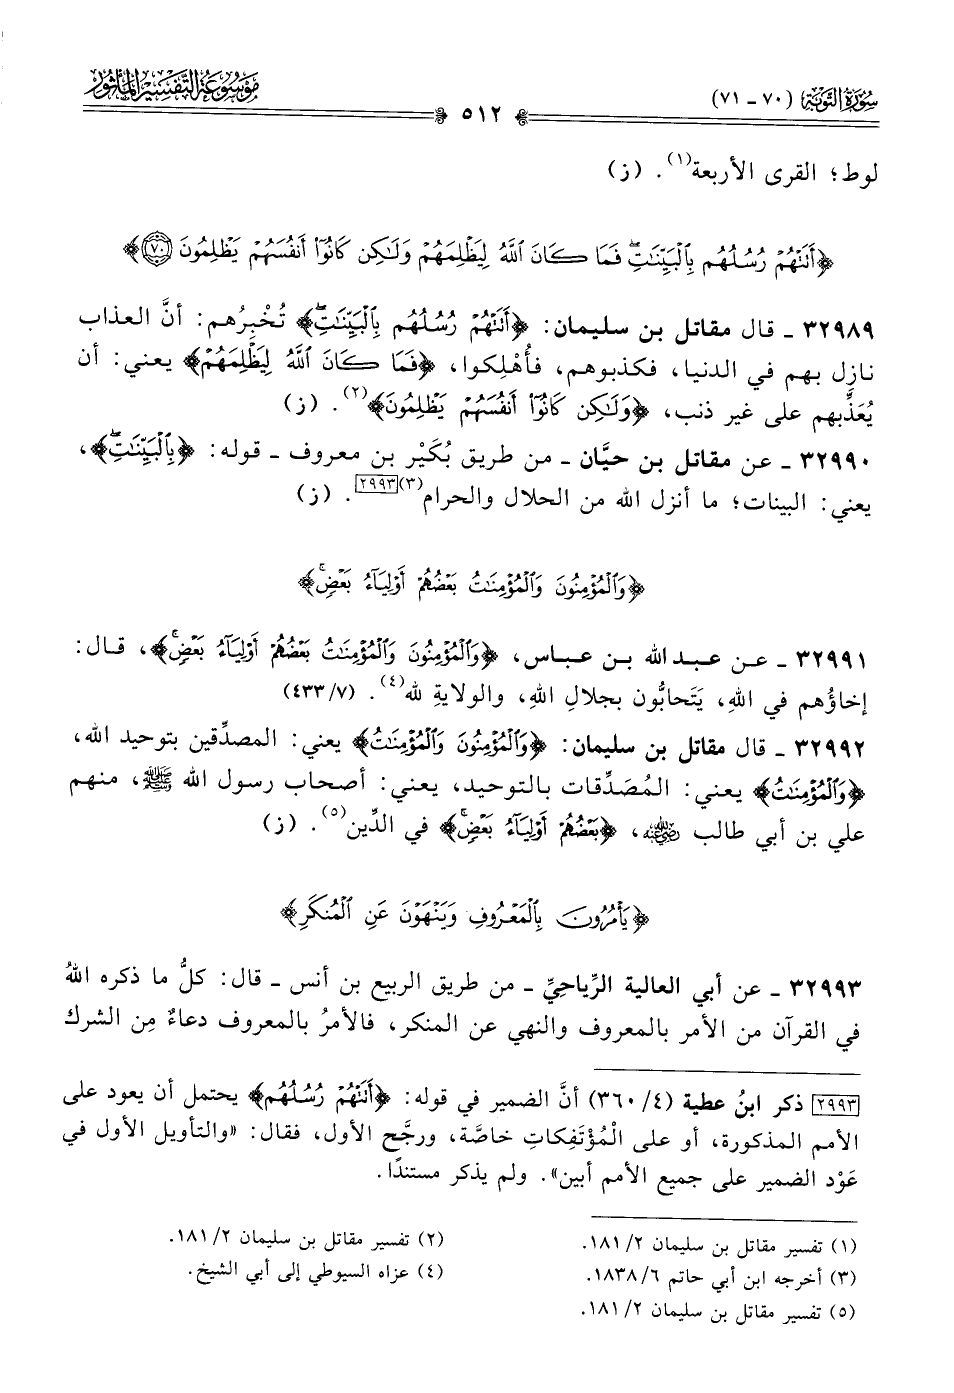 سُورَةُ التَّوْبَةِ (٧٠ - ٧١)
٥١٢
مَوْسُوعَةُ التَّفْسِيرِ المَأْثُورِ
لوط؛ القرى الأربعة(١). (ز)
﴿أَتَتْهُمْ رُسُلُهُم بِٱلْبَيِّنَٰتِۖ فَمَا كَانَ ٱللَّهُ لِيَظْلِمَهُمْ وَلَٰكِن كَانُوٓا۟ أَنفُسَهُمْ يَظْلِمُونَ ٧٠﴾
٣٢٩٨٩ ـ قال مقاتل بن سليمان: ﴿أَتَتْهُمْ رُسُلُهُم بِٱلْبَيِّنَٰتِۖ﴾ تُخْبِرُهم: أنَّ العذاب
نازِل بهم في الدنيا، فكذبوهم، فأُهْلِكوا، ﴿فَمَا كَانَ ٱللَّهُ لِيَظْلِمَهُمْ﴾ يعني: أن
يُعَذِّبهم على غير ذنب، ﴿وَلَٰكِن كَانُوٓا۟ أَنفُسَهُمْ يَظْلِمُونَ﴾(٢). (ز)
٣٢٩٩٠ ـ عن مقاتل بن حيَّان ـ من طريق بُكَيْر بن معروف ـ قوله: ﴿بِٱلْبَيِّنَٰتِۖ﴾،
يعني: البينات؛ ما أنزل الله من الحلال والحرام(٣)[٢٩٩٣]. (ز)
﴿وَٱلْمُؤْمِنُونَ وَٱلْمُؤْمِنَٰتُ بَعْضُهُمْ أَوْلِيَآءُ بَعْضٍۚ﴾
٣٢٩٩١ ـ عن عبد الله بن عباس، ﴿وَٱلْمُؤْمِنُونَ وَٱلْمُؤْمِنَٰتُ بَعْضُهُمْ أَوْلِيَآءُ بَعْضٍۚ﴾، قال:
إخاؤُهم في اللهِ، يَتَحابُّون بجلالِ اللهِ، والولايةِ لله(٤). (٤٣٣/٧)
٣٢٩٩٢ ـ قال مقاتل بن سليمان: ﴿وَٱلْمُؤْمِنُونَ وَٱلْمُؤْمِنَٰتُ﴾ يعني: المصدِّقين بتوحيد الله،
﴿وَٱلْمُؤْمِنَٰتُ﴾ يعني: المُصَدِّقات بالتوحيد، يعني: أصحاب رسول الله ﷺ، منهم
علي بن أبي طالب رضي الله عنه، ﴿بَعْضُهُمْ أَوْلِيَآءُ بَعْضٍۚ﴾ في الدِّين(٥). (ز)
﴿يَأْمُرُونَ بِٱلْمَعْرُوفِ وَيَنْهَوْنَ عَنِ ٱلْمُنكَرِ﴾
٣٢٩٩٣ ـ عن أبي العالية الرِّياحِيِّ ـ من طريق الربيع بن أنس ـ قال: كلُّ ما ذكره اللهُ
في القرآن من الأمر بالمعروف والنهي عن المنكر، فالأمرُ بالمعروف دعاءٌ مِن الشرك
[٢٩٩٣] ذكر ابنُ عطية (٣٦٠/٤) أنَّ الضمير في قوله: ﴿أَتَتْهُمْ رُسُلُهُم﴾ يحتمل أن يعود على
الأمم المذكورة، أو على الْمُؤْتَفِكاتِ خاصَّة، ورجَّح الأول، فقال: «والتأويل الأول في
عَوْد الضمير على جميع الأمم أبين». ولم يذكر مستندًا.
(١) تفسير مقاتل بن سليمان ١٨١/٢.
(٢) تفسير مقاتل بن سليمان ١٨١/٢.
(٣) أخرجه ابن أبي حاتم ١٨٣٨/٦.
(٤) عزاه السيوطي إلى أبي الشيخ.
(٥) تفسير مقاتل بن سليمان ١٨١/٢.